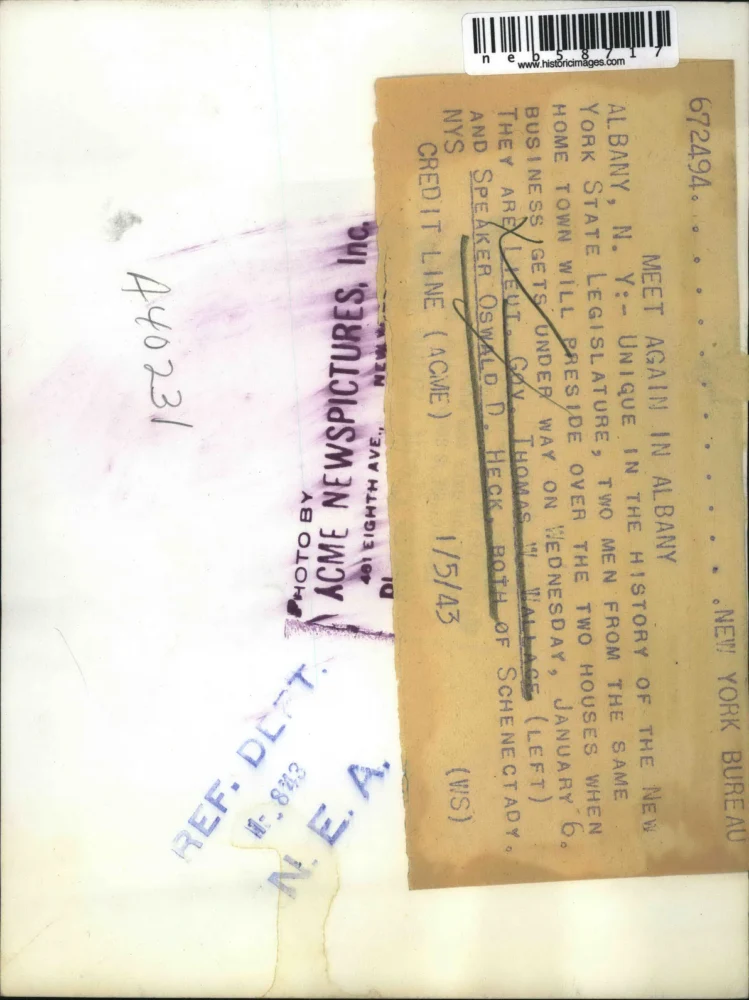 neb58717
www.historicimages.com
672494. . . . . . . . . . . NEW YORK BUREAU
MEET AGAIN IN ALBANY
ALBANY, N. Y:- UNIQUE IN THE HISTORY OF THE NEW
YORK STATE LEGISLATURE, TWO MEN FROM THE SAME
HOME TOWN WILL PRESIDE OVER THE TWO HOUSES WHEN
BUSINESS GETS UNDER WAY ON WEDNESDAY, JANUARY 6.
THEY ARE LIEUT. GOV. THOMAS W. WALLACE (LEFT)
AND SPEAKER OSWALD D. HECK, BOTH OF SCHENECTADY.
NYS
CREDIT LINE (ACME) 1/5/43 (WS)
PHOTO BY
ACME NEWSPICTURES, Inc.
461 EIGHTH AVE., NEW
A40231
REF. DEPT.
N. E. A.